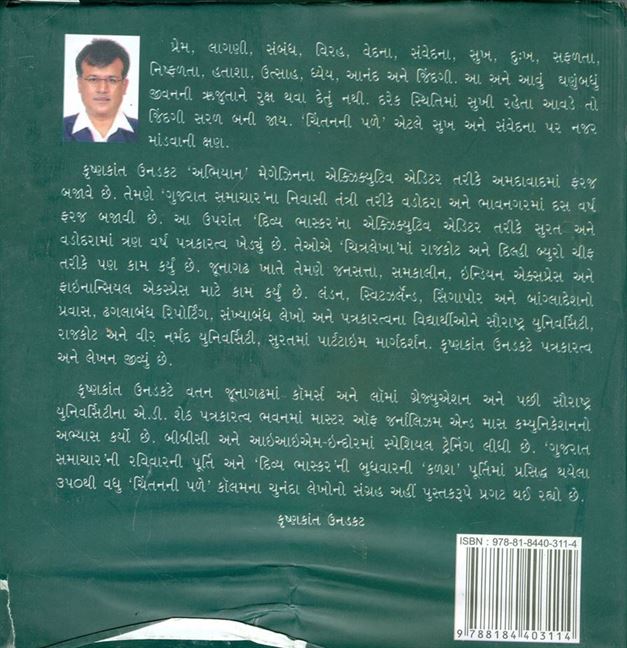 પ્રેમ, લાગણી, સંબંધ, વિરહ, વેદના, સંવેદના, સુખ, દુઃખ, સફળતા,
નિષ્ફળતા, હતાશા, ઉત્સાહ, ધ્યેય, આનંદ અને જિંદગી. આ અને આવું ઘણુંબધું
જીવનની ઋજુતાને રુક્ષ થવા દેતું નથી. દરેક સ્થિતિમાં સુખી રહેતા આવડે તો
જિંદગી સરળ બની જાય. 'ચિંતનની પળે' એટલે સુખ અને સંવેદના પર નજર
માંડવાની ક્ષણ.
કૃષ્ણકાંત ઉનડકટ 'અભિયાન' મેગેઝિનના એક્ઝિક્યુટિવ એડિટર તરીકે અમદાવાદમાં ફરજ
બજાવે છે. તેમણે 'ગુજરાત સમાચાર'ના નિવાસી તંત્રી તરીકે વડોદરા અને ભાવનગરમાં દસ વર્ષ
ફરજ બજાવી છે. આ ઉપરાંત 'દિવ્ય ભાસ્કર'ના એક્ઝિક્યુટિવ એડિટર તરીકે સુરત અને
વડોદરામાં ત્રણ વર્ષ પત્રકારત્વ ખેડ્યું છે. તેઓએ 'ચિત્રલેખા'માં રાજકોટ અને દિલ્હી બ્યુરો ચીફ
તરીકે પણ કામ કર્યું છે. જૂનાગઢ ખાતે તેમણે જનસત્તા, સમકાલીન, ઇન્ડિયન એક્સપ્રેસ અને
ફાઇનાન્સિયલ એક્સપ્રેસ માટે કામ કર્યું છે. લંડન, સ્વિટઝર્લેન્ડ, સિંગાપોર અને બાંગ્લાદેશનો
પ્રવાસ, ઢગલાબંધ રિપોર્ટિંગ, સંખ્યાબંધ લેખો અને પત્રકારત્વના વિદ્યાર્થીઓને સૌરાષ્ટ્ર યુનિવર્સિટી,
રાજકોટ અને વીર નર્મદ યુનિવર્સિટી, સુરતમાં પાર્ટટાઇમ માર્ગદર્શન. કૃષ્ણકાંત ઉનડકટે પત્રકારત્વ
અને લેખન જીવ્યું છે.
કૃષ્ણકાંત ઉનડકટે વતન જૂનાગઢમાં કૉમર્સ અને લૉમાં ગ્રેજ્યુએશન અને પછી સૌરાષ્ટ્ર
યુનિવર્સિટીના એ.ડી. શેઠ પત્રકારત્વ ભવનમાં માસ્ટર ઑફ જર્નાલિઝમ એન્ડ માસ કમ્યુનિકેશનનો
અભ્યાસ કર્યો છે. બીબીસી અને આઇઆઇએમ-ઇન્દોરમાં સ્પેશિયલ ટ્રેનિંગ લીધી છે. 'ગુજરાત
સમાચાર'ની રવિવારની પૂર્તિ અને 'દિવ્ય ભાસ્કર'ની બુધવારની 'કળશ' પૂર્તિમાં પ્રસિદ્ધ થયેલા
૩૫૦થી વધુ 'ચિંતનની પળે' કૉલમના ચુનંદા લેખોનો સંગ્રહ અહીં પુસ્તકરૂપે પ્રગટ થઈ રહ્યો છે.
કૃષ્ણકાંત ઉનડકટ
ISBN : 978-81-8440-311-4
9 788184 403114